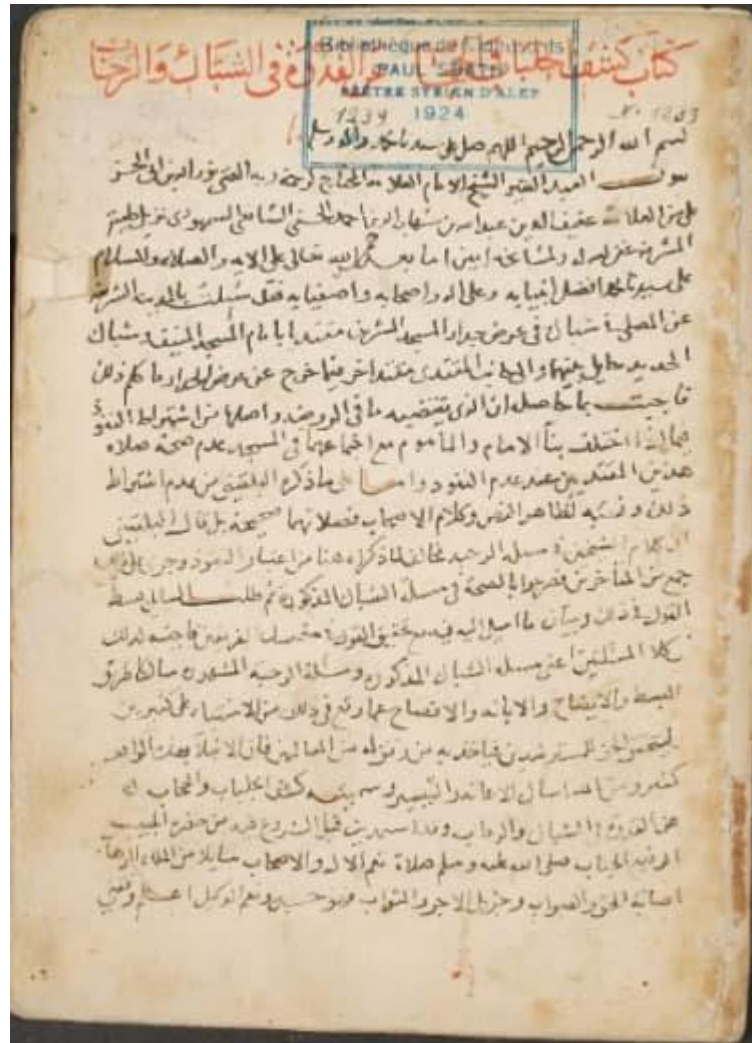 كتاب كشف الجلباب والحجاب عن القدوة في الشباك والرحاب
Bibliothèque de Manuscrits
PAUL SBATH
PRÊTRE SYRIEN D'ALEP
1234 1924 No 1203
بسم الله الرحمن الرحيم اللهم صل على سيدنا محمد واله وسلم
العبد الفقير الشيخ الامام العلامة المحتاج لرحمة ربه الغني نور الدين ابي الحسن
علي بن العلامة عفيف الدين عبد الله بن شهاب الدين احمد الحسني الشافعي السمهودي نزيل طيبة
المشرفة غفر له ولمشايخه امين اما بعد حمد الله تعالى على الايه والصلاه والسلام
على سيدنا محمد افضل انبيايه وعلى اله واصحابه واصفيايه فقد سئلت بالمدينة الشريفة
عن المصلي في شباك في عرض جدار المسجد الشريف مقتديا بامام المسجد المنيف وشباك
الحديد حايل بينهما والى جانب المقتدي مقتد اخر فيما خرج عن عرض الجدار ما حكم ذلك
فاجبت بما حاصله ان الذي يقتضيه ما في الروضه واصلها من اشتراط النفوذ
فيما اذا اختلف بناا الامام والماموم مع اجتماعهما في المسجد عدم صحة صلاه
هذين المقتديين عند عدم النفوذ واما على ما ذكره البلقيني من عدم اشتراط
ذلك ونسبه لظاهر النص وكلام الاصحاب فصلاتهما صحيحة بل قال البلقيني
ان كلام الشيخين في مسلة الرحبه مخالف لما ذكراه هنا من اعتبار النفوذ وجرى على
جمع من المتاخرين فصرحوا بالصحة في مسلة الشباك المذكوره ثم طلب السايل بسط
القول في ذلك وبيان ما اميل اليه فيه مع تحقيق القول فاجبته لذلك
كلا المسئلتين اعني مسلة الشباك المذكوره ومسلة الرحبة المشهوره سالكا طريق
البسط والايضاح والابانه والافصاح عما وقع في ذلك من الاشتباه على كثيرين
ليتضح الحق للمسترشدين
ومن الله اسال الاعانه والتيسير وسميته كشف الجلباب والحجاب
عن القدوة في الشباك والرحاب
الجناب صلى الله عليه وسلم صلاة تعم الال والاصحاب سايلا من الملك الوهاب
اصابة الحق والصواب وجزيل الاجر والثواب فهو حسبي ونعم الوكيل